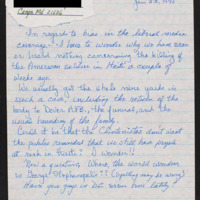 Jan 22, 199
Camp Md 21
In regards to bias in the liberal media
coverage - I have to wonder why we have seen
or heard nothing concerning the killing of
the American soldier in Haiti a couple of
weeks ago.
We usually get the whole nine yards in
such a case, including the return of the
body to Dover AFB, the funeral, and the
usual hounding of the family.
Could it be that the Clintonistas don't want
the public reminded that we still have people
at risk in Haiti? I wonder!!
Now a question: Whoa, the world wonders
is George "Stephanopolis"?? (spelling may be wrong)
Have you guys is not seen him lately